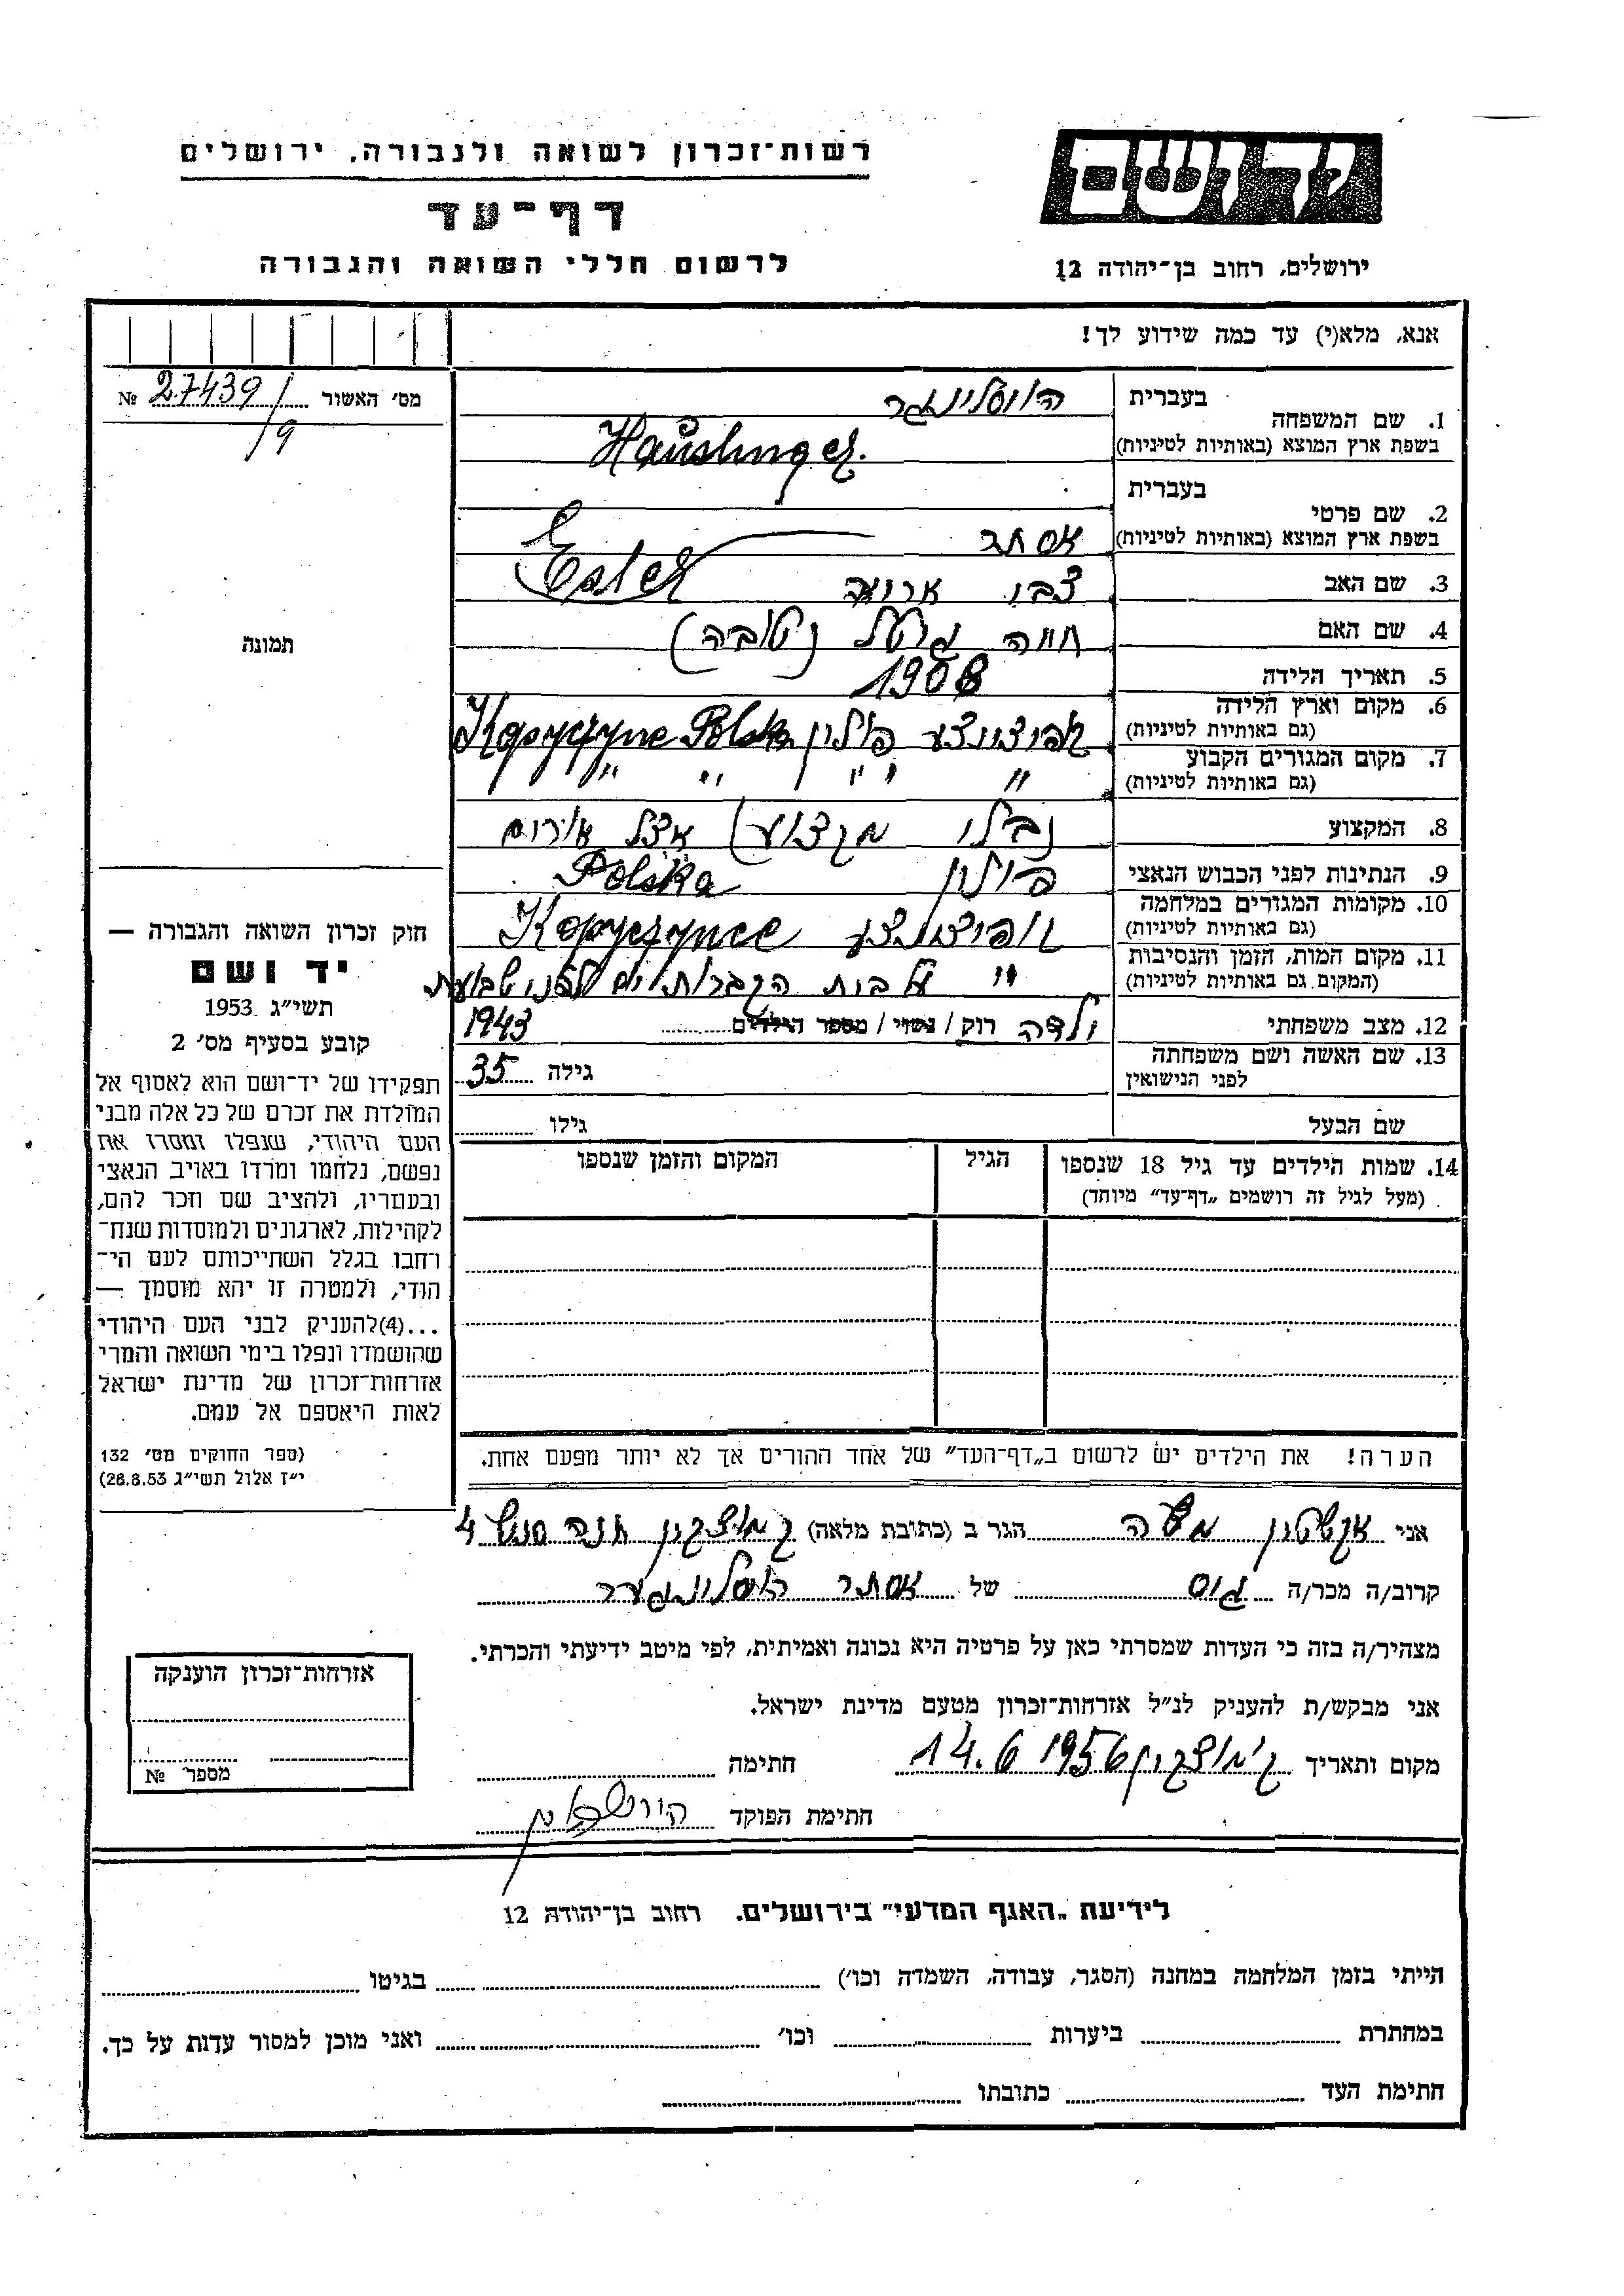 רשות־זכרון לשואה ולגבורה, ירושלים
יד ושם
דף־עד
לרשום חללי השואה והגבורה
ירושלים, רחוב בן־יהודה 12
אנא, מלא(י) עד כמה שידוע לך!
מס׳ האשור № 27439/9
תמונה
1. שם המשפחה
בעברית
Haüslinger
בשפת ארץ המוצא (באותיות לטיניות)
בעברית
2. שם פרטי
בשפת ארץ המוצא (באותיות לטיניות) אסתר Ester
3. שם האב צבי אריה
4. שם האם חווה (טובה)
5. תאריך הלידה 1908
6. מקום וארץ הלידה קופיצינצע פולין Kopyczynce Polska
(גם באותיות לטיניות)
7. מקום המגורים הקבוע " " " " "
(גם באותיות לטיניות)
8. המקצוע (בלי מקצוע) אצל הורים
9. הנתינות לפני הכבוש הנאצי פולין Polska
10. מקומות המגורים במלחמה Kopyczynce
(גם באותיות לטיניות)
11. מקום המות, הזמן והנסיבות " על בית הקברות
(המקום גם באותיות לטיניות)
12. מצב משפחתי ילדה רוק / נשוי / מספר הילדים 1943
13. שם האשה ושם משפחתה
לפני הנישואין
גילה 35
שם הבעל גילו
14. שמות הילדים עד גיל 18 שנספו הגיל המקום והזמן שנספו
(מעל לגיל זה רושמים „דף־עד״ מיוחד)
הערה! את הילדים יש לרשום ב„דף־העד״ של אחד ההורים אך לא יותר מפעם אחת.
חוק זכרון השואה והגבורה —
יד ושם
תשי״ג 1953
קובע בסעיף מס׳ 2
תפקידו של יד־ושם הוא לאסוף אל
המולדת את זכרם של כל אלה מבני
העם היהודי, שנפלו ומסרו את
נפשם, נלחמו ומרדו באויב הנאצי
ובעוזריו, ולהציב שם וזכר להם,
לקהילות, לארגונים ולמוסדות שנח־
רחבו בגלל השתייכותם לעם הי־
הודי, ולמטרה זו יהא מוסמך —
...(4)להעניק לבני העם היהודי
שהושמדו ונפלו בימי השואה והמרי
אזרחות־זכרון של מדינת ישראל
לאות היאספם אל עמם.
(ספר החוקים מס׳ 132
י״ז אלול תשי״ג 28.8.53)
אני משה הגר ב (כתובת מלאה) ק מוצקין חנה סנש 4
קרוב/ה מכר/ה גיס של אסתר
מצהיר/ה בזה כי העדות שמסרתי כאן על פרטיה היא נכונה ואמיתית, לפי מיטב ידיעתי והכרתי.
אני מבקש/ת להעניק לנ״ל אזרחות־זכרון מטעם מדינת ישראל.
מקום ותאריך ק׳ מוצקין 14.6 1956 חתימה
חתימת הפוקד
אזרחות־זכרון הוענקה
מספר №
לידיעת „האגף המדעי״ בירושלים. רחוב בן־יהודה 12
הייתי בזמן המלחמה במחנה (הסגר, עבודה, השמדה וכו׳) בגיטו
במחתרת ביערות וכו׳ ואני מוכן למסור עדות על כך.
חתימת העד כתובתו